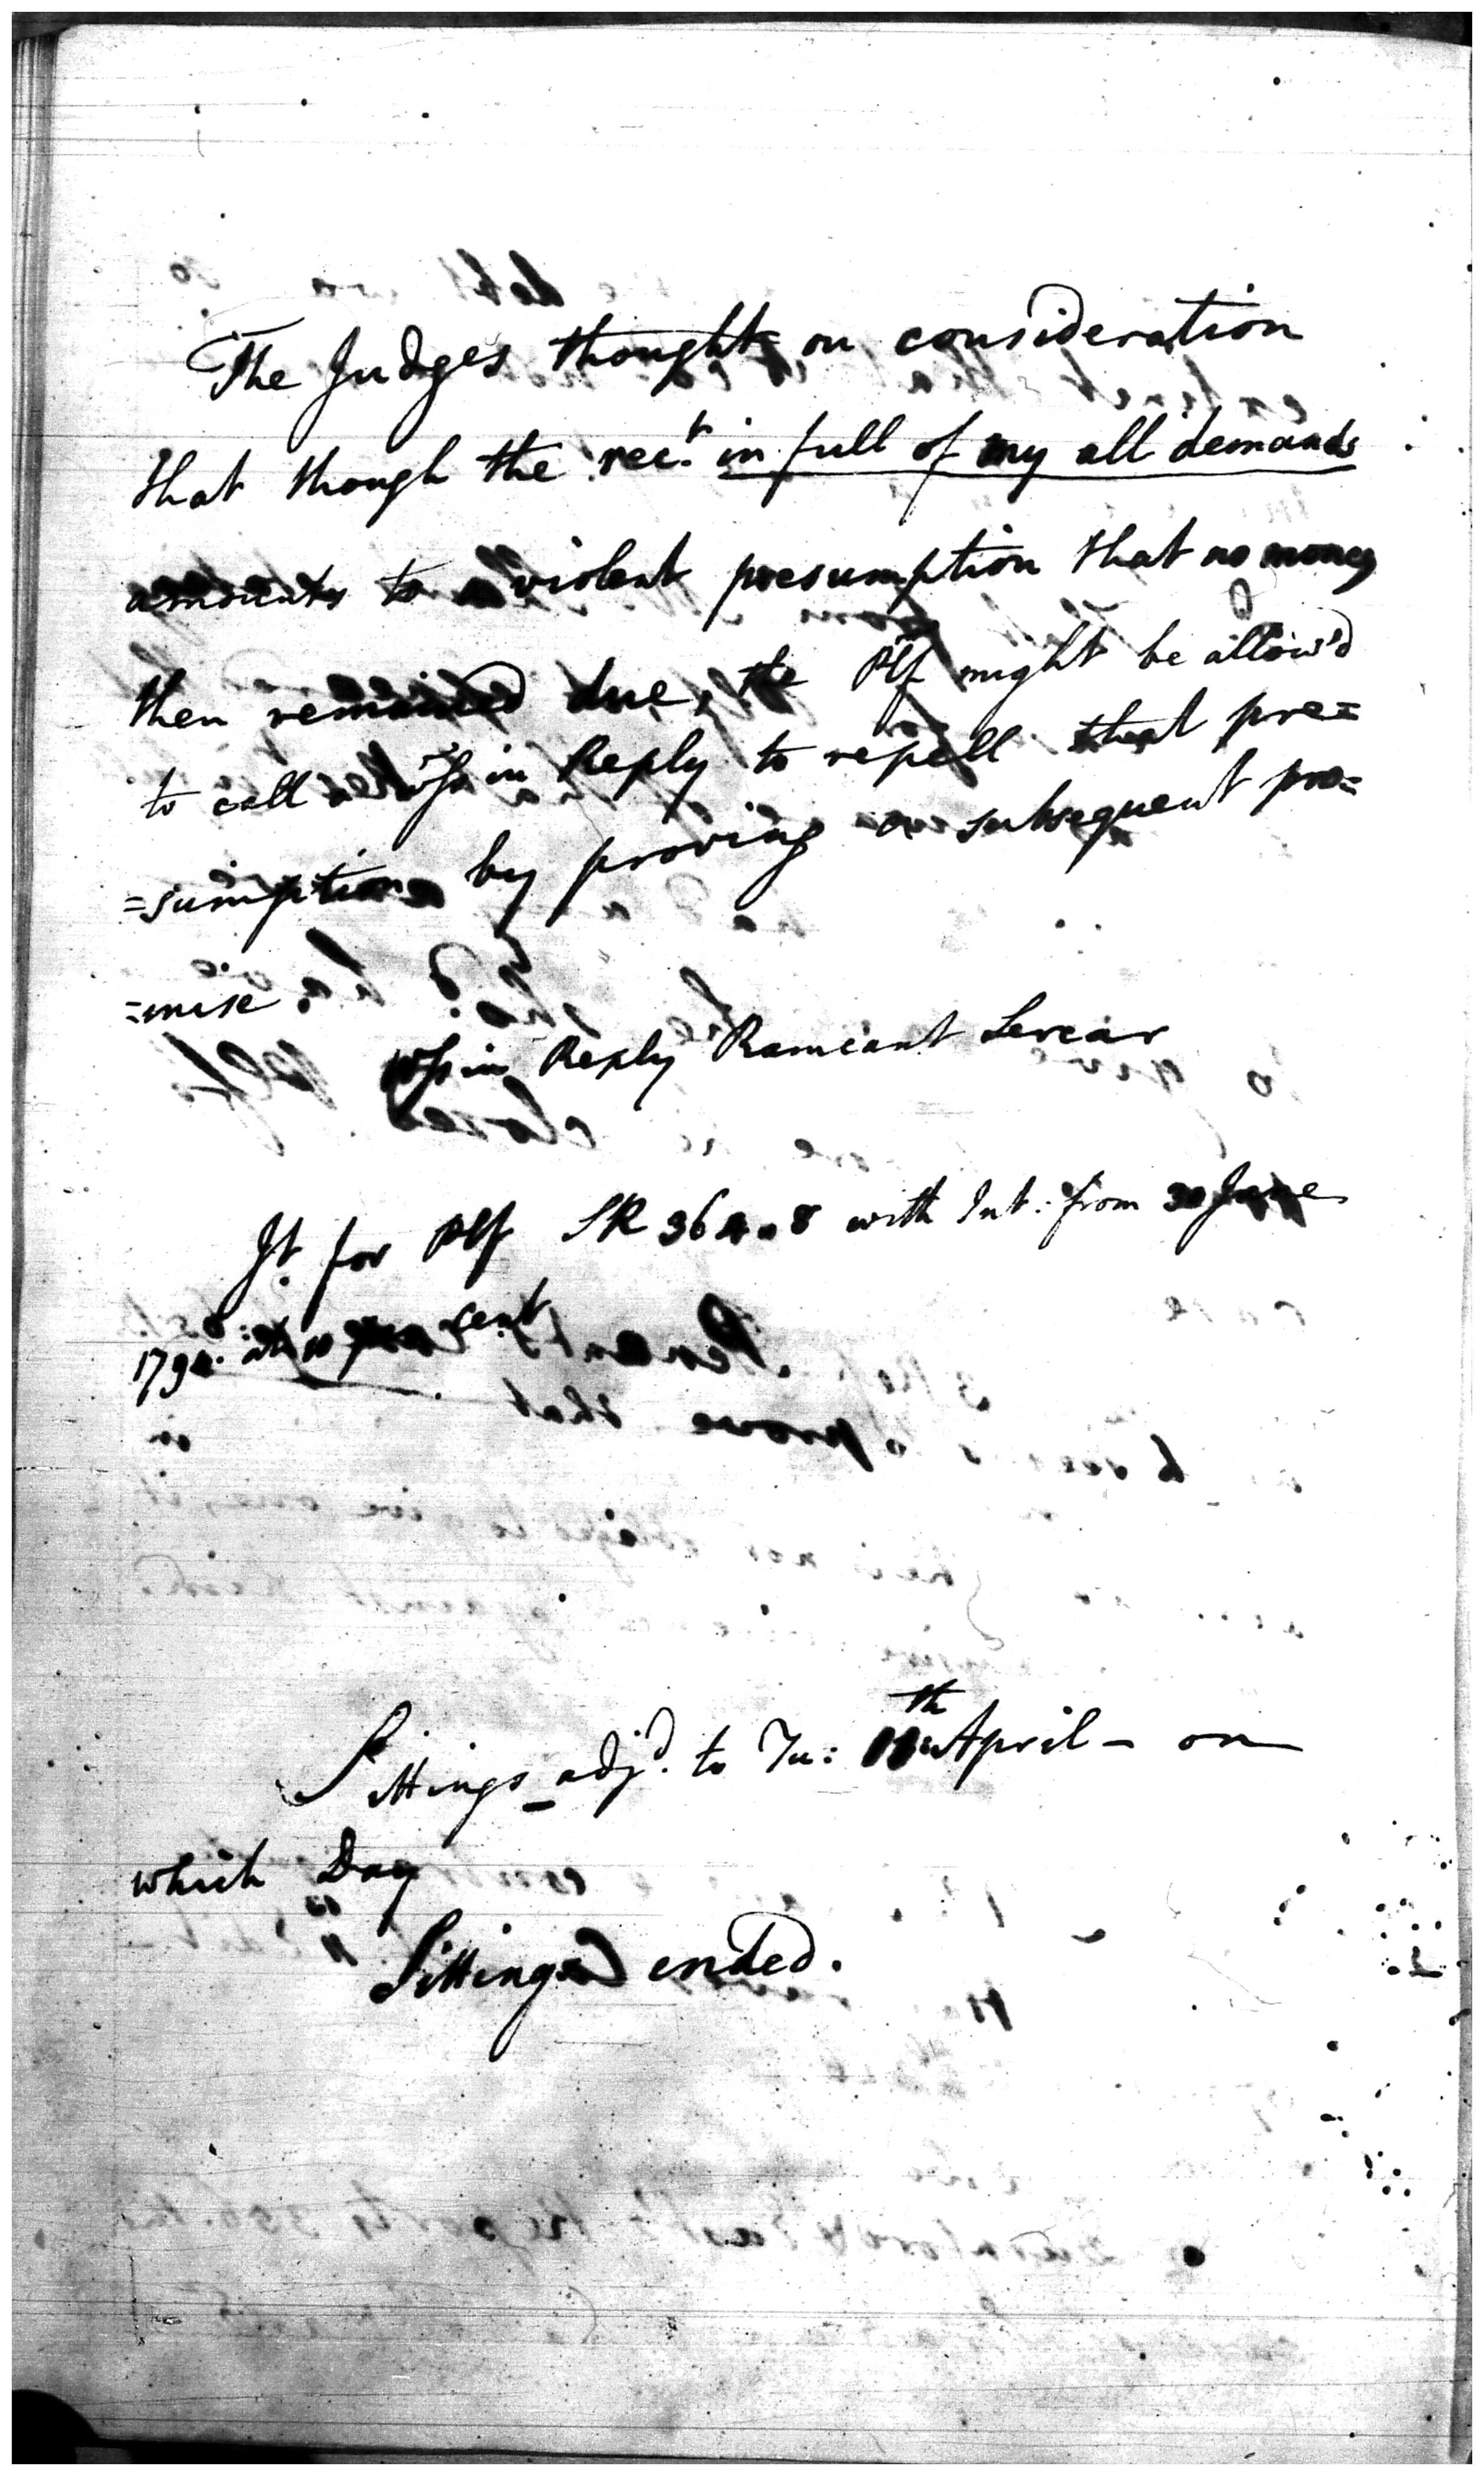 The Judges thought on consideration
that though the rec.t in full of my all demands
amounts to a violent presumption that no money
then remained due, the Plf might be allow'd
to call in Reply to repell that pre=
=sumption by proving a subsequent pro=
=mise
in Reply Ramcant Sercar
Jt. for Plf SR 364.8 with Int: from 30 June
179 at 10 per cent
Sittings adj.d to Tu: 11th April - on
which Day
Sittings ended.